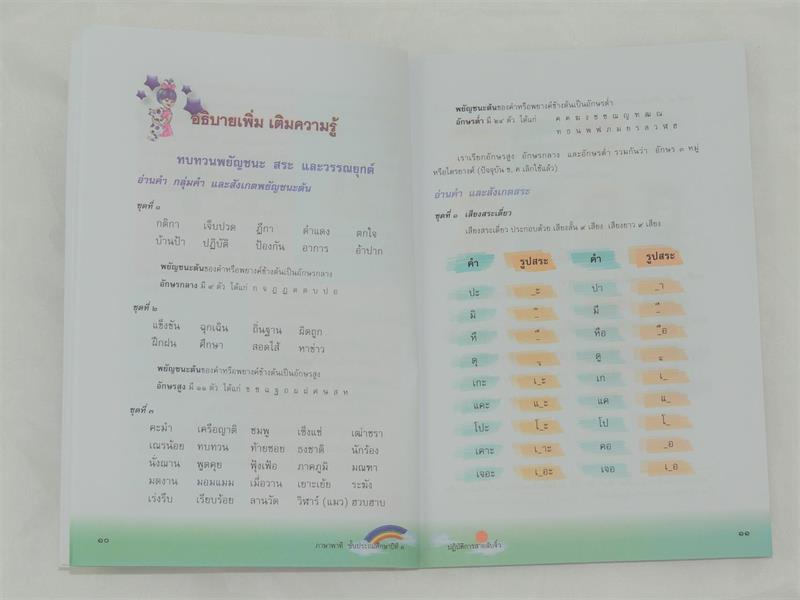 อธิบายเพิ่ม เติมความรู้
ทบทวนพยัญชนะ สระ และวรรณยุกต์
อ่านคำ กลุ่มคำ และสังเกตพยัญชนะต้น
ชุดที่ ๑
กติกา เจ็บปวด ฎีกา ดำแดง ตกใจ
บ้านป้า ปฏิบัติ ป้องกัน อาการ อ้าปาก
พยัญชนะต้นของคำหรือพยางค์ข้างต้นเป็นอักษรกลาง
อักษรกลาง มี ๙ ตัว ได้แก่ ก จ ฎ ฏ ด ต บ ป อ
ชุดที่ ๒
แข็งขัน ฉุกเฉิน ถิ่นฐาน ผิดถูก
ฝึกฝน ศึกษา สอดไส้ หาข่าว
พยัญชนะต้นของคำหรือพยางค์ข้างต้นเป็นอักษรสูง
อักษรสูง มี ๑๑ ตัว ได้แก่ ข ฃ ฉ ฐ ถ ผ ฝ ศ ษ ส ห
ชุดที่ ๓
คะมำ เครือญาติ ชมพู เซ็งแซ่ เฒ่าชรา
เณรน้อย ทบทวน ท้ายซอย ธงชาติ นักร้อง
นั่งฌาน พูดคุย ฟุ้งเฟ้อ ภาคภูมิ มณฑา
มดงาน มอมแมม เมื่อวาน เยาะเย้ย ระฆัง
เร่งรีบ เรียบร้อย ลานวัด วิฬาร์ (แมว) ฮวบฮาบ
๑๐
ภาษาพาที ชั้นประถมศึกษาปีที่
พยัญชนะต้นของคำหรือพยางค์ข้างต้นเป็นอักษรต่ำ
อักษรต่ำ มี ๒๔ ตัว ได้แก่ ค ฅ ฆ ง ช ซ ฌ ญ ฑ ฒ ณ
ท ธ น พ ฟ ภ ม ย ร ล ว ฬ ฮ
เราเรียกอักษรสูง อักษรกลาง และอักษรต่ำ รวมกันว่า อักษร ๓ หมู่
หรือไตรยางศ์ (ปัจจุบัน ฃ, ฅ เลิกใช้แล้ว)
อ่านคำ และสังเกตสระ
ชุดที่ ๑ เสียงสระเดี่ยว
เสียงสระเดี่ยว ประกอบด้วย เสียงสั้น ๙ เสียง เสียงยาว ๙ เสียง
คำ รูปสระ คำ รูปสระ
ปะ _ะ ปา _า
มิ _ิ มี _ี
ทึ _ึ ทือ _ือ
ดุ _ุ ดู _ู
เกะ เ_ะ เก เ_
แคะ แ_ะ แค แ_
โปะ โ_ะ โป โ_
เคาะ เ_าะ คอ _อ
เจอะ เ_อะ เจอ เ_อ
ปฏิบัติการสายลับจิ๋ว
๑๑